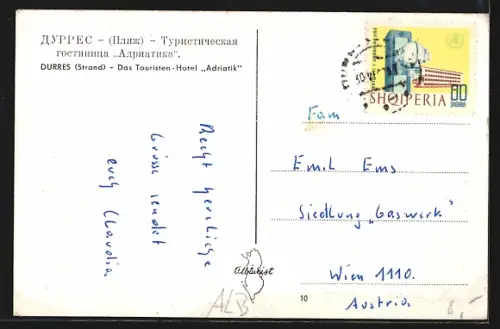 ДУРРЕС — (Пляж) — Туристическая
гостиница „Адриатика“.
DURRES (Strand) – Das Touristen-Hotel „Adriatik“
Recht herzliche
Grüsse sendet
euch Claudia
SHQIPERIA
80
Fam
Emil Ems
Siedlung „Gaswerk“
Wien 1110.
Austria
Albturist
10
ALB
8,-